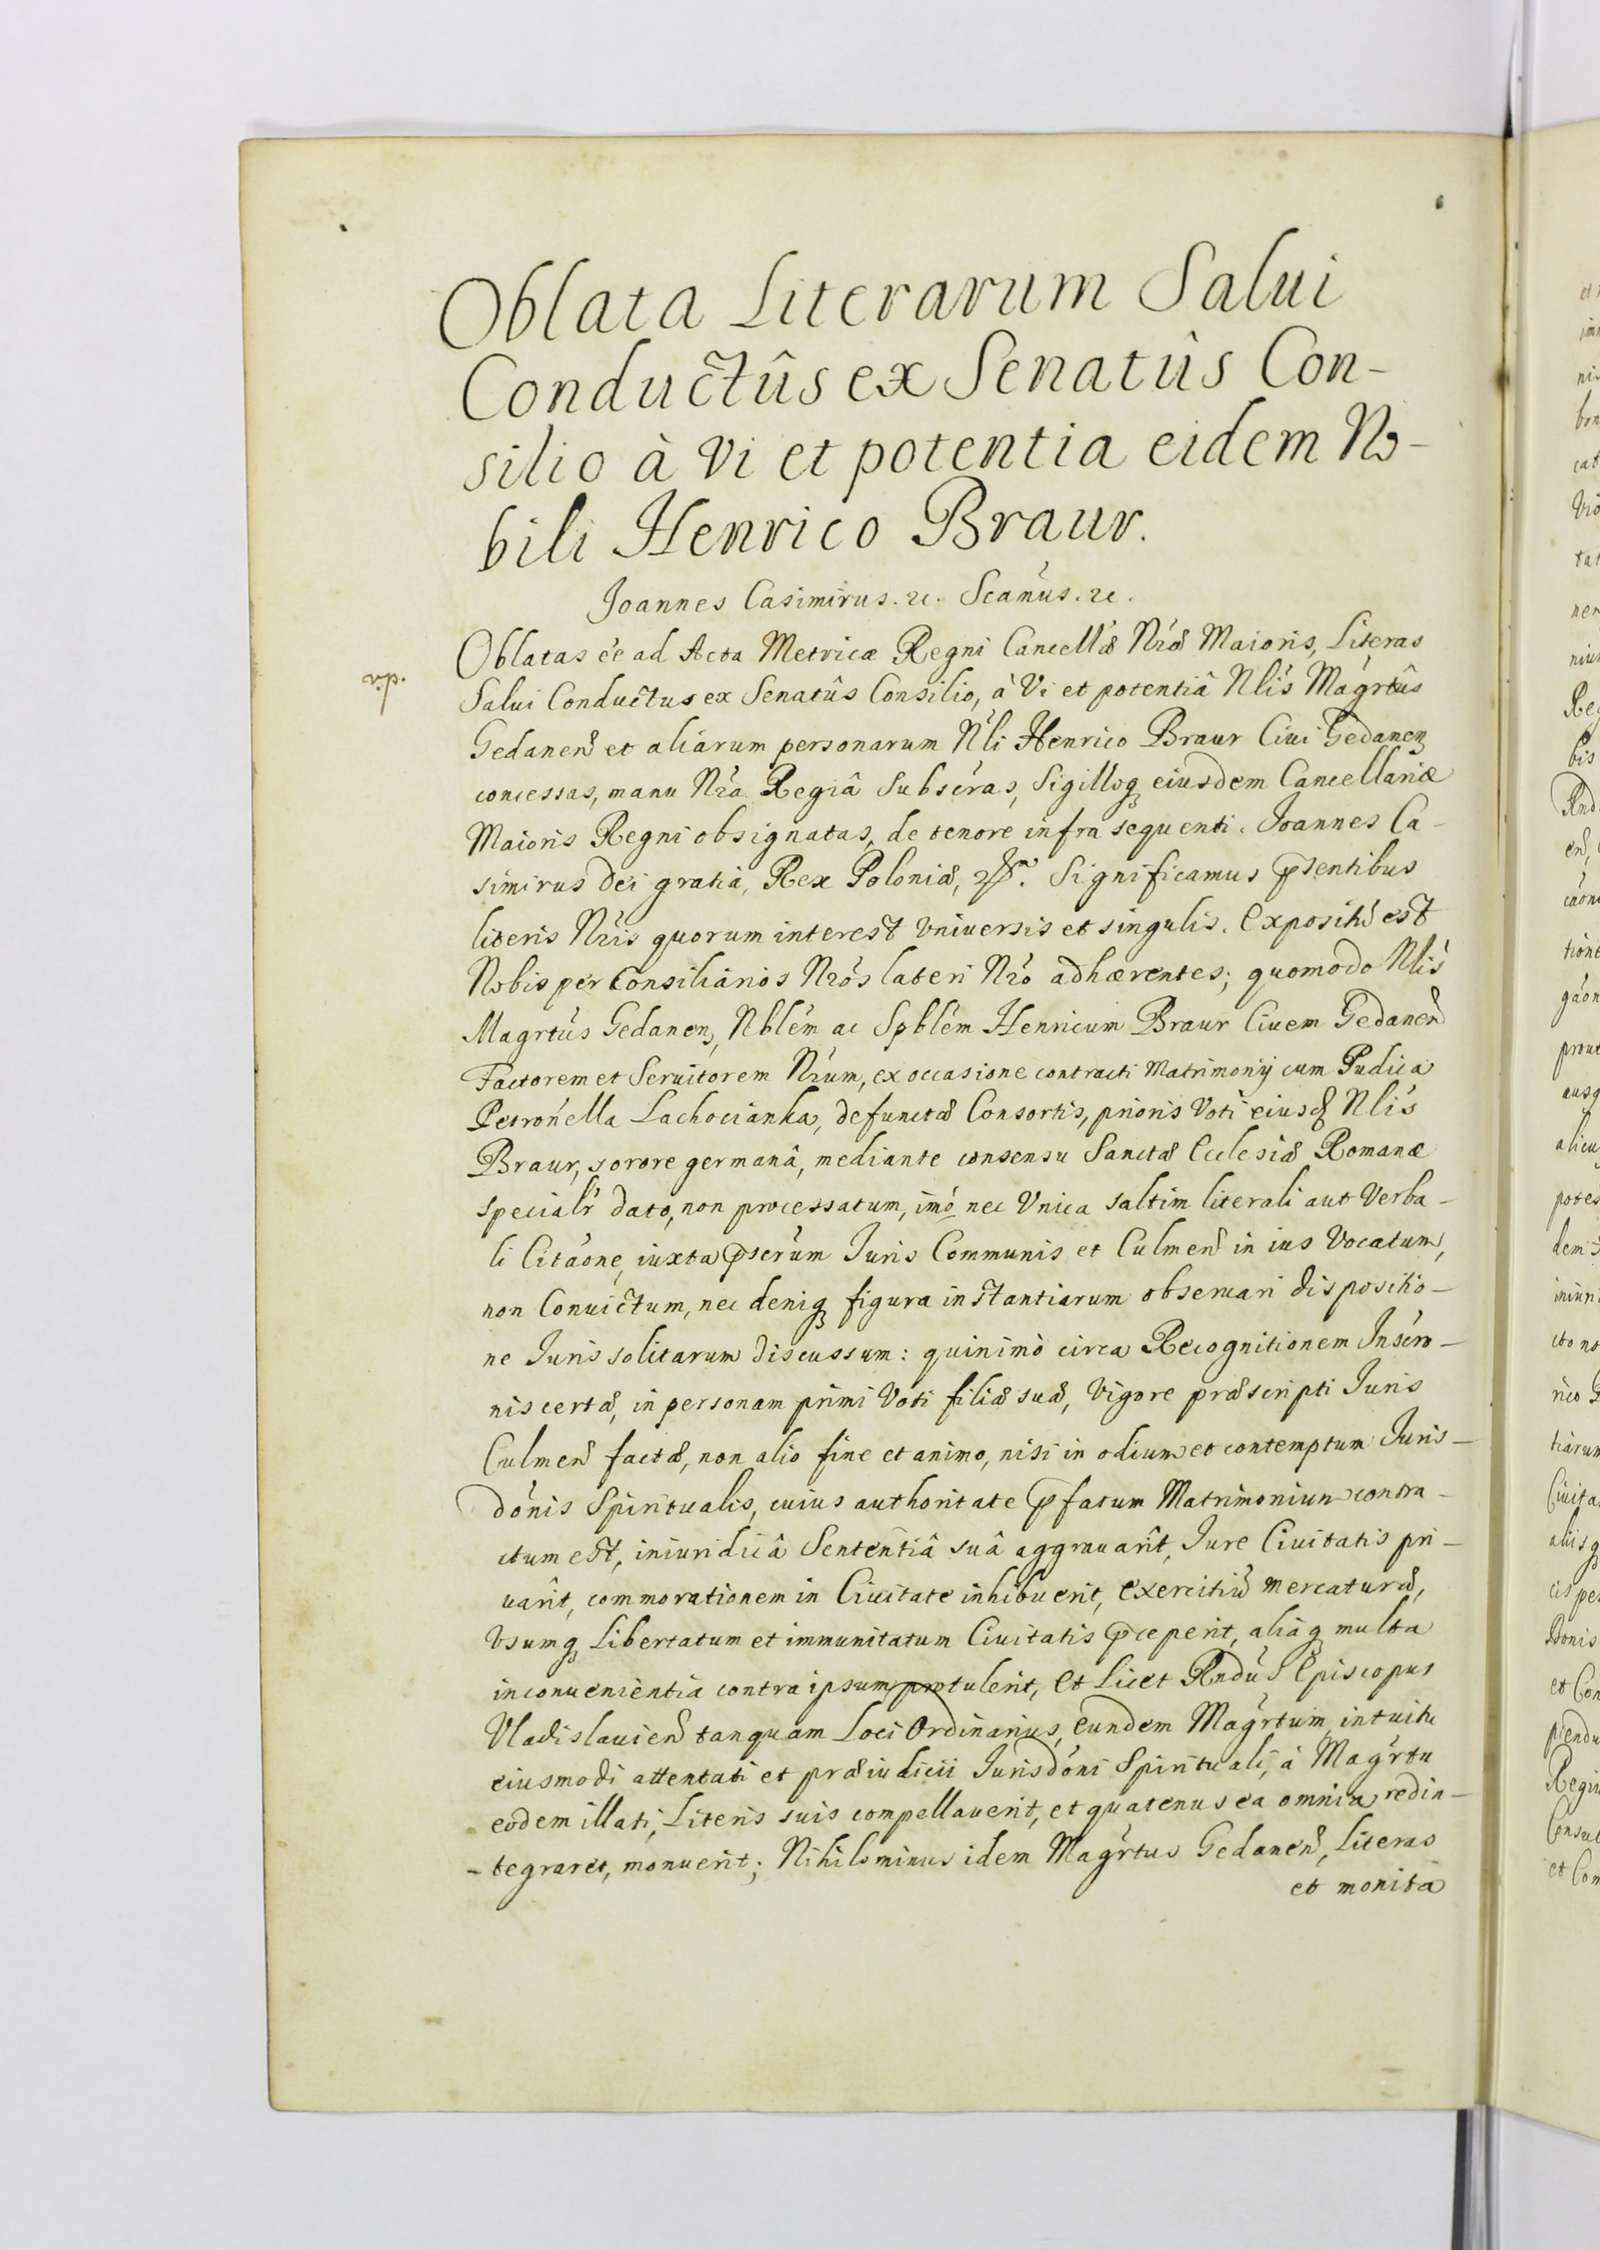 Oblata Literarum Salui
Conductûs ex Senatûs Con-
silio à Vi et potentia eidem No-
bili Henrico Braur.
Joannes Casimirus. &c. Scamús. &c.
Oblatas éé ad Acta Metricæ Regni Cancellæ Nræ Maioris, Literas
Salui Conductus ex Senatûs Consilio, à Vi et potentiâ Nlis Magrtûs
Gedanen et aliarum personarum Nli Henrico Braur Ciui Gedanen
concessas, manu Nrá Regiâ Subscras, Sigilloq eiusdem Cancellariæ
Maioris Regni obsignatas, de tenore infra sequenti. Joannes Ca-
simirus Dei gratia, Rex Poloniæ, &c. Significamus pntibus
literis Nris quorum interest vniuersis et singulis. Expositũ est
Nobis per Consiliarios Nros lateri Nro adhærentes; quomodo Nlis
Magrtus Gedanen, Nblém ac Spblém Henricum Braur Ciuem Gedanen
Factorem et Seruitorem Nrum, ex occasione contracti Matrimonij cum Pudica
Petronella Lachocianka, defunctæ Consortis, prioris Voti eiusd Nlis
Braur, sorore germanâ, mediante consensu Sanctæ Ecclesiæ Romanæ
specialr dato, non processatum, imó nec Vnica saltim literali aut Verba-
li Citaóne, iuxta pscrúm Juris Communis et Culmen in ius Vocatum,
non Conuictum, nec deniq figura instantiarum obseruari dispositio-
ne Juris solitarum discussum: quinimò circa Recognitionem Inscro-
nis certæ, in personam primi Voti filiæ suæ, Vigore præscripti Juris
Culmen factæ, non alio fine et animo, nisi in odium et contemptum Juris-
dónis Spiritualis, cuius authoritate pfatum Matrimonium contra-
ctum est, iniuridicâ Sententiâ suâ aggrauarît, Jure Ciuitatis pri-
uarît, commorationem in Ciuitate inhibuerit, Exercitiũ Mercaturæ,
Vsumq Libertatum et immunitatum Ciuitatis pceperit, aliaq multa
inconuenientia contra ipsum protulerit, Et Licet Rndus Episcopus
Vladislauien tanquam Loci Ordinarius, eundem Magrtum, intuitu
eiusmodi attentati et præiudicii Jurisdóni Spirituali, à Magrtu
eodem illati, Literis suis compellauerit, et quatenus ea omnia redin-
-tegraret, monuerit; Nihilominus idem Magrtus Gedanen, Literas
et monita